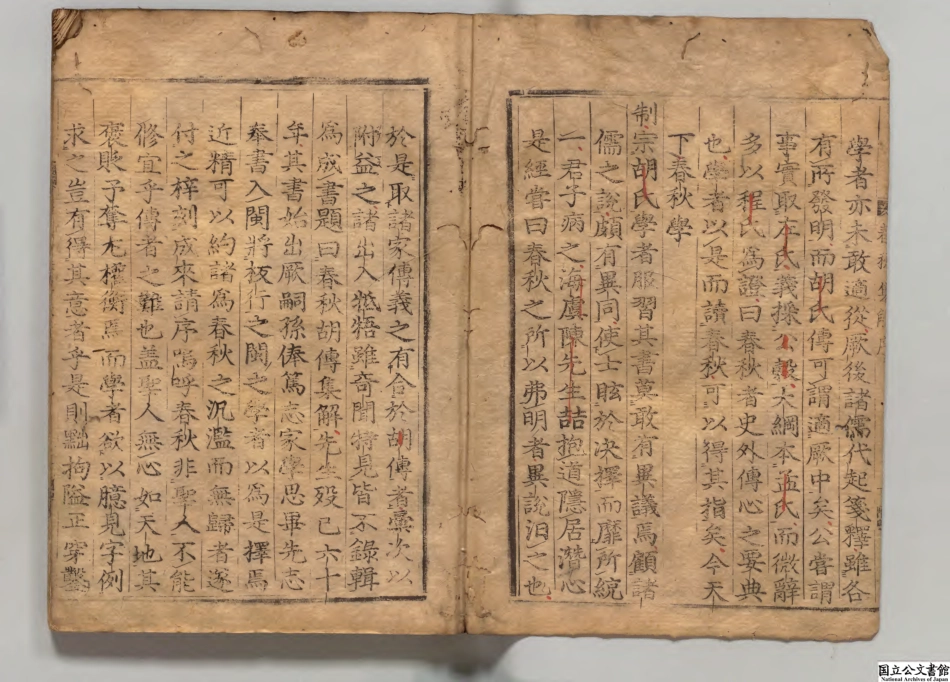 學者亦未敢適從厥後諸儒代起箋釋雖各
有所發明而胡氏傳可謂適厥中矣公嘗謂
事實取左氏義採公穀大綱本孟氏而微辭
多以程氏爲證曰春秋者史外傳心之要典
也學者以是而讀春秋可以得其指矣今天
下春秋學
制宗胡氏學者服習其書莫敢有異議焉顧諸
儒之說頗有異同使士眩於决擇而靡所統
一君子病之海虞陳先生喆抱道隱居潛心
是經嘗曰春秋之所以弗明者異說汨之也
於是取諸家傳義之有合於胡傳者彙次以
附益之諸出入牴牾雖奇聞特見皆不錄輯
爲成書題曰春秋胡傳集解先生殁已六十
年其書始出厥嗣孫俸篤志家學思畢先志
奉書入閩將板行之閩之學者以爲是擇焉
近精可以約諸爲春秋之沉濫而無歸者遂
付之梓刻成來請序嗚呼春秋非聖人不能
脩宜乎傳者之難也盖聖人無心如天地其
褒貶予奪尤權衡焉而學者欲以臆見字例
求之豈有得其意者乎是則黜拘隘正穿鑿
国立公文書館
National Archives of Japan